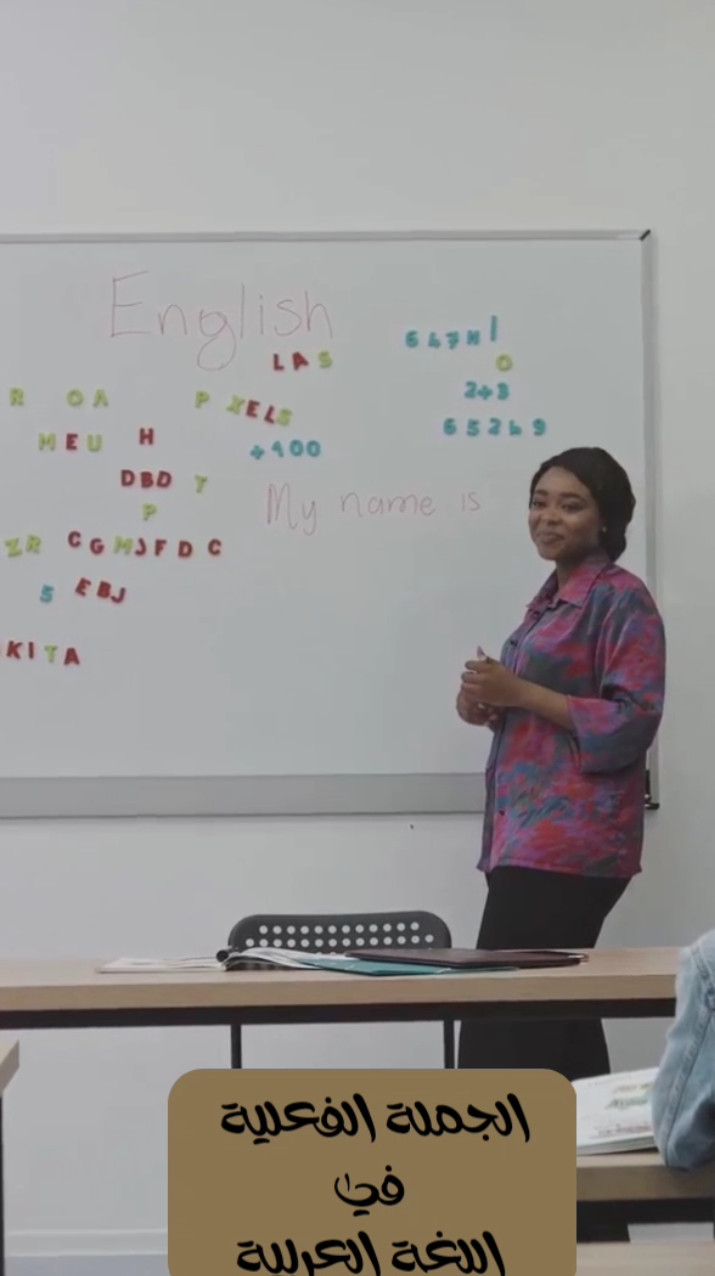 English
LAS
647H1
O
R OA P XELS
2+3
MEU H
+900
65269
DBD T
My name is
P
ZR CGMJFDC
5 EBJ
KITA
الجملة الفعلية
في
اللغة العربية